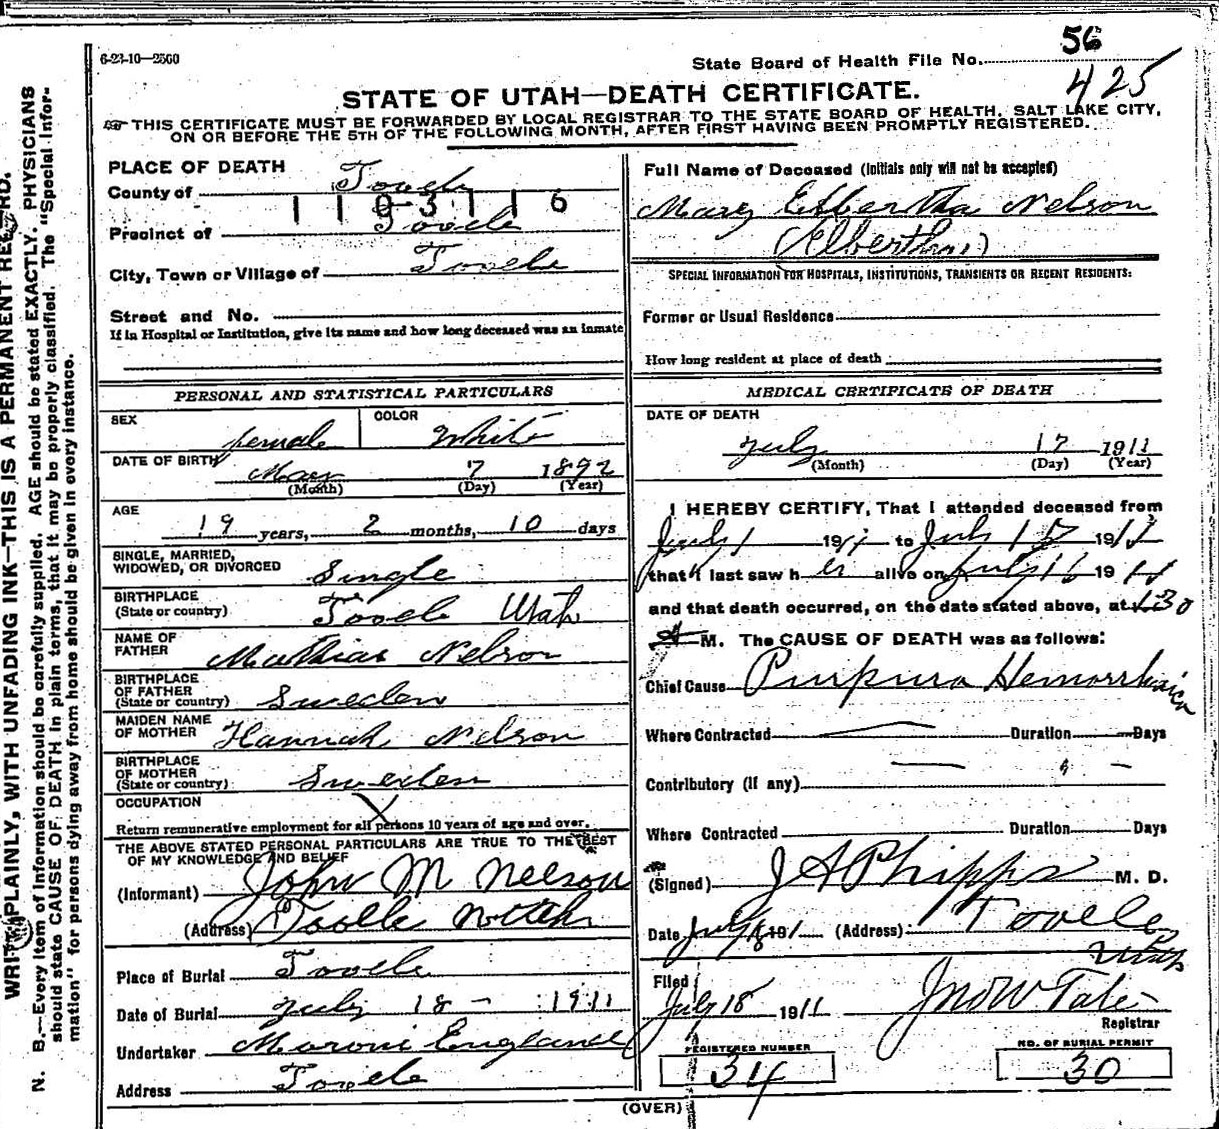 6-23-10—2500
State Board of Health File No. 56
425
STATE OF UTAH—DEATH CERTIFICATE.
THIS CERTIFICATE MUST BE FORWARDED BY LOCAL REGISTRAR TO THE STATE BOARD OF HEALTH, SALT LAKE CITY,
ON OR BEFORE THE 5TH OF THE FOLLOWING MONTH, AFTER FIRST HAVING BEEN PROMPTLY REGISTERED.
PLACE OF DEATH
County of Tooele
1103116
Precinct of Tooele
City, Town or Village of Tooele
Street and No.
If in Hospital or Institution, give its name and how long deceased was an inmate
Full Name of Deceased (Initials only will not be accepted)
Mary Elbertha Nelson
(Elbertha)
SPECIAL INFORMATION FOR HOSPITALS, INSTITUTIONS, TRANSIENTS OR RECENT RESIDENTS:
Former or Usual Residence
How long resident at place of death
PERSONAL AND STATISTICAL PARTICULARS
SEX female COLOR White
DATE OF BIRTH May 7 1892
(Month) (Day) (Year)
AGE
19 years, 2 months, 10 days
SINGLE, MARRIED,
WIDOWED, OR DIVORCED Single
BIRTHPLACE
(State or country) Tooele Utah
NAME OF
FATHER Mathias Nelson
BIRTHPLACE
OF FATHER
(State or country) Sweden
MAIDEN NAME
OF MOTHER Hannah Nelson
BIRTHPLACE
OF MOTHER
(State or country) Sweden
OCCUPATION X
Return remunerative employment for all persons 10 years of age and over.
THE ABOVE STATED PERSONAL PARTICULARS ARE TRUE TO THE BEST
OF MY KNOWLEDGE AND BELIEF
(Informant) John M Nelson
(Address) Tooele Utah
Place of Burial Tooele
Date of Burial July 18 - 1911
Undertaker Moroni England
Address Tooele
MEDICAL CERTIFICATE OF DEATH
DATE OF DEATH
July 17 1911
(Month) (Day) (Year)
I HEREBY CERTIFY, That I attended deceased from
July 1 1911 to July 17 1911
that I last saw her alive on July 16 1911
and that death occurred, on the date stated above, at 1.30
A M. The CAUSE OF DEATH was as follows:
Chief Cause Purpura Hemorrhaica
Where Contracted Duration Days
Contributory (if any)
Where Contracted Duration Days
(Signed) J A Phipps M. D.
Date July 18 191 (Address) Tooele
Utah
Filed
July 18 1911 Jno W Tate
Registrar
REGISTERED NUMBER
34
NO. OF BURIAL PERMIT
30
(OVER)
WRITE PLAINLY, WITH UNFADING INK—THIS IS A PERMANENT RECORD.
N. B.—Every item of information should be carefully supplied. AGE should be stated EXACTLY. PHYSICIANS
should state CAUSE OF DEATH in plain terms, that it may be properly classified. The "Special Infor-
mation" for persons dying away from home should be given in every instance.